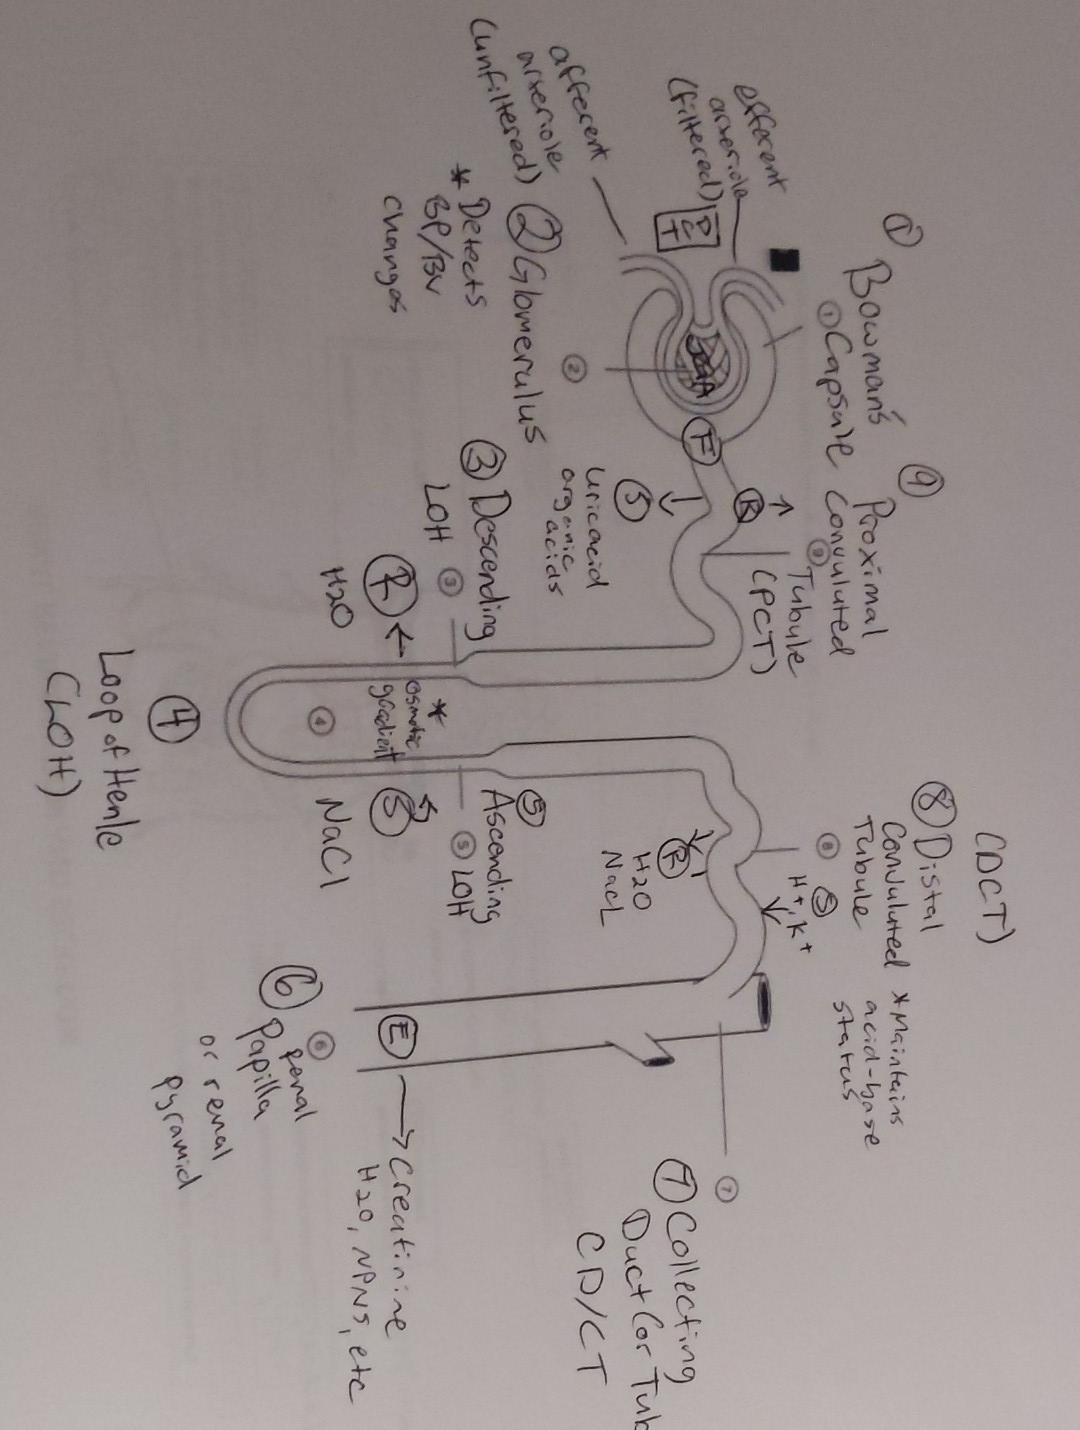 efferent
arteriole
(filtered)
afferent
arteriole
(unfiltered)
① Bowman's
① Capsule
② Glomerulus
* Detects
BP/BV
changes
②
F
⑨ Proximal
Convuluted
⑨ Tubule
(PCT)
R
S
uric acid
organic
acids
③ Descending
LOH
③
R
H2O
*
osmotic
gradient
④
④
Loop of Henle
(LOH)
⑤
Ascending
⑤ LOH
S
NaCl
(DCT)
⑧ Distal
Convuluted
Tubule
* Maintains
acid-base
status
⑧
S
H+, K+
R
H2O
NaCL
⑦
⑦ Collecting
Duct (or Tub
CD/CT
E
Creatinine
H2O, NPNS, etc
⑥
⑥ renal
Papilla
or renal
pyramid